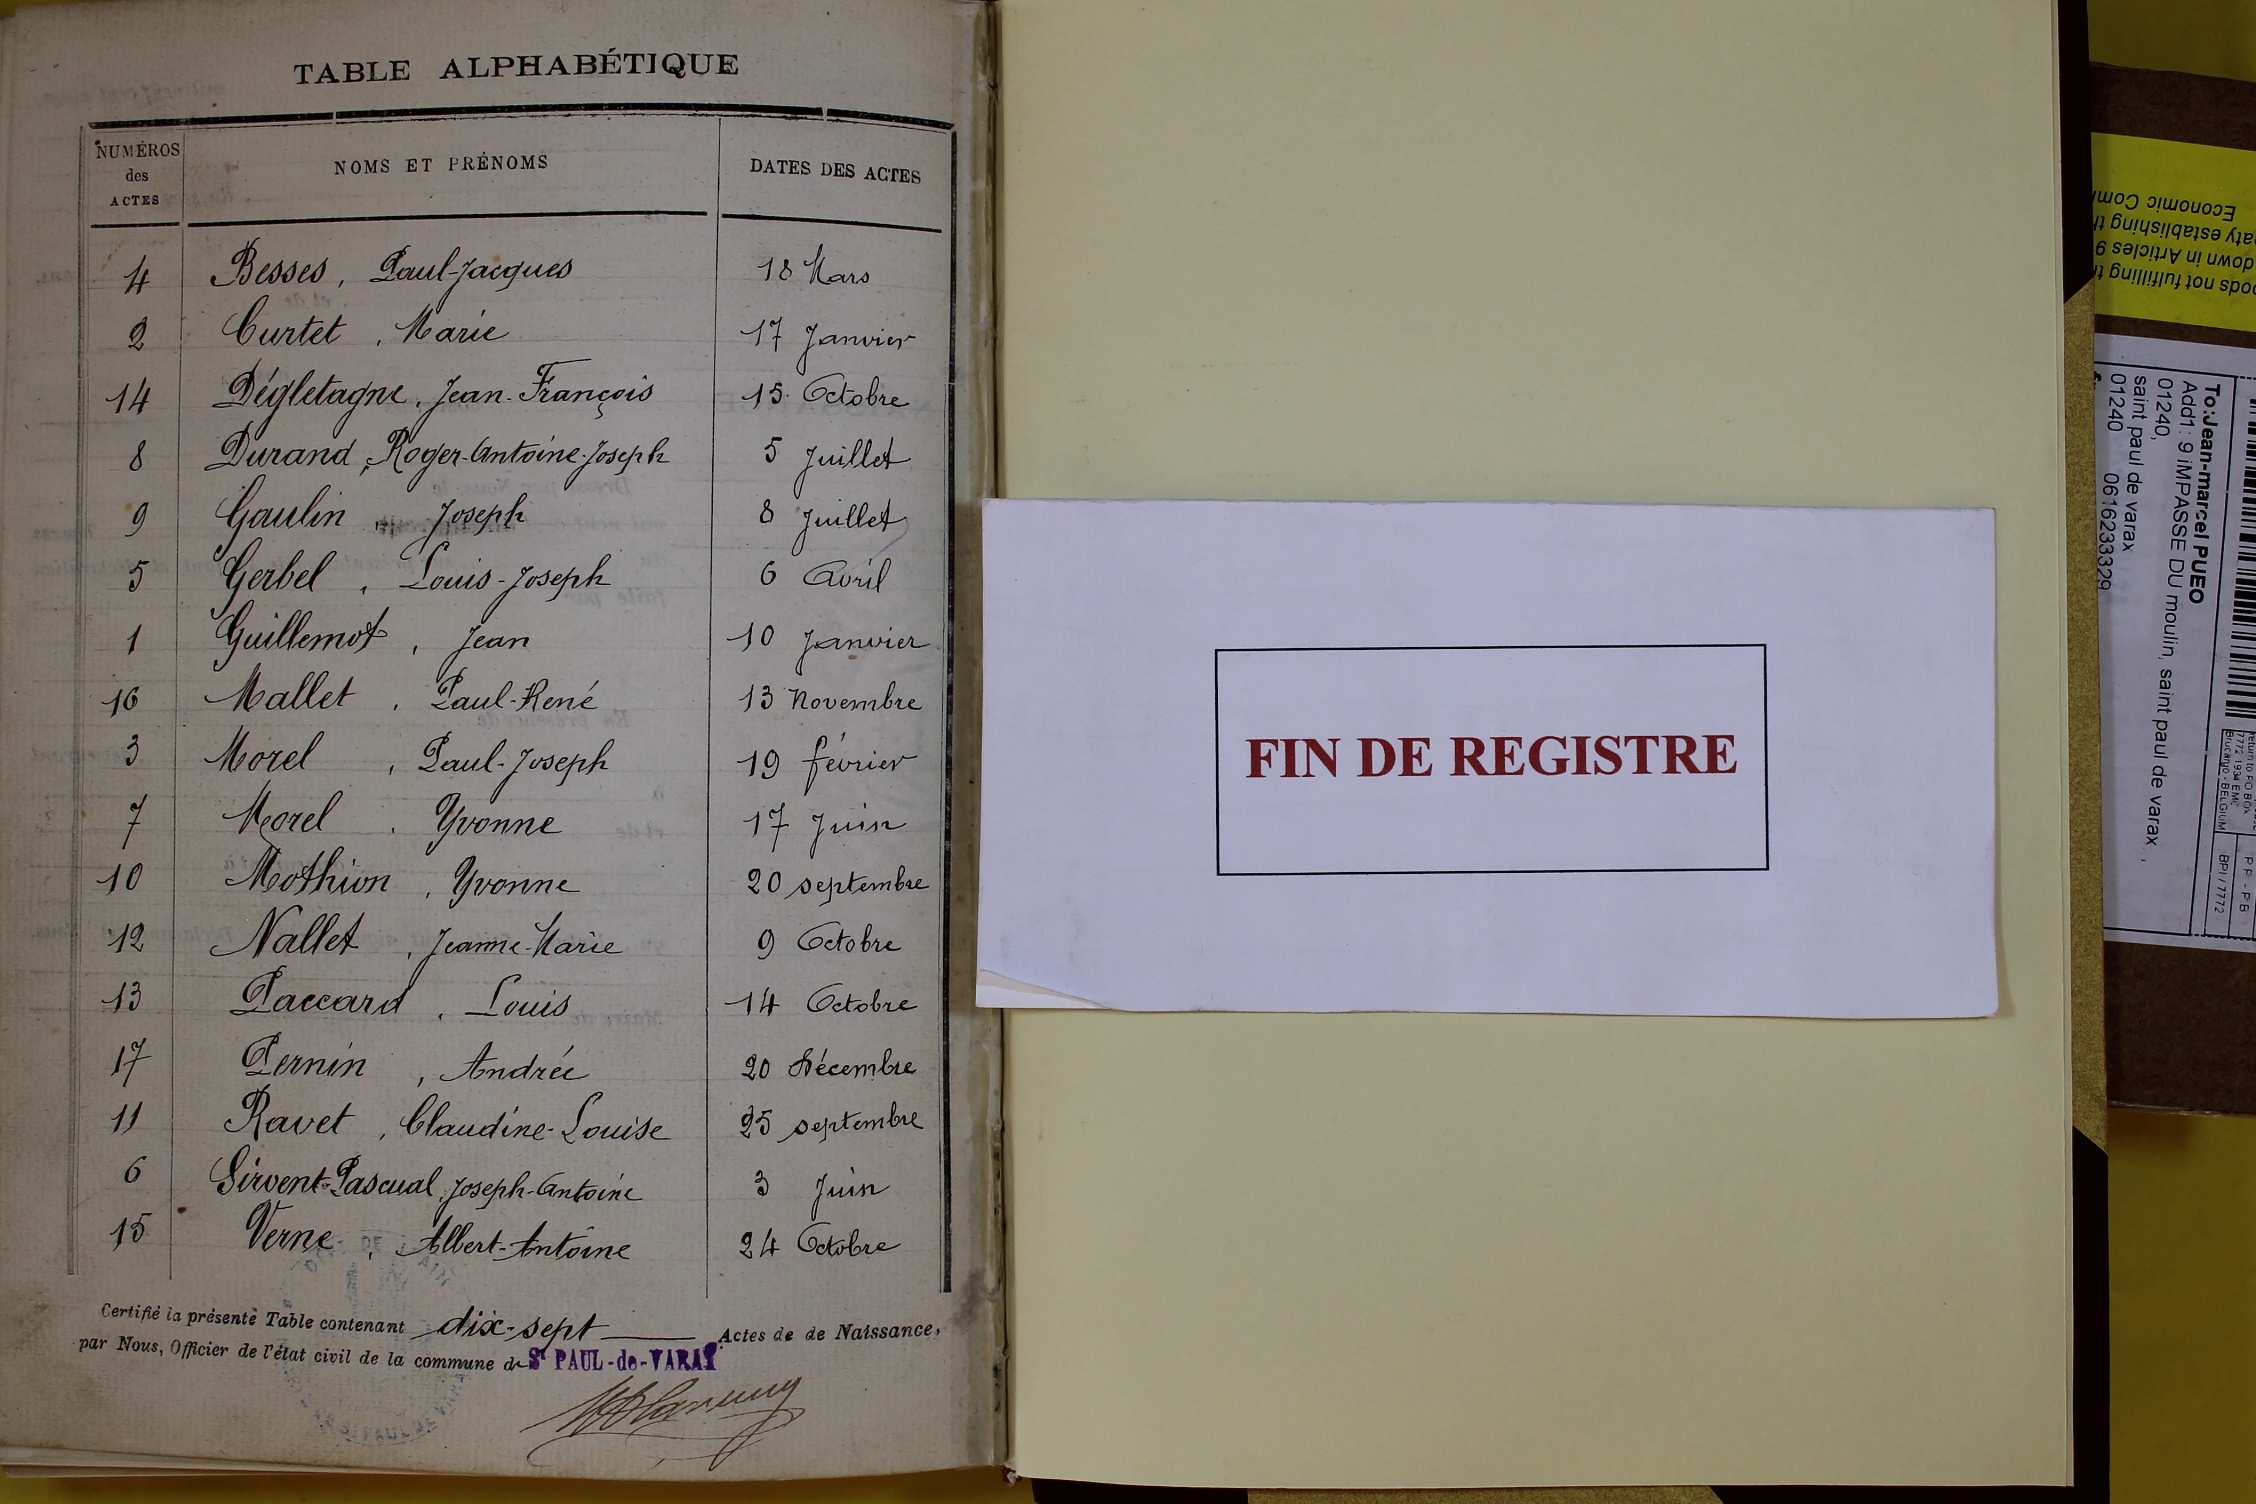 TABLE ALPHABÉTIQUE
NUMÉROS des ACTES NOMS ET PRÉNOMS DATES DES ACTES
4 Besses, Paul-Jacques 18 Mars
2 Curtet, Marie 17 Janvier
14 Dégletagne, Jean-François 15 Octobre
8 Durand, Roger-Antoine-Joseph 5 Juillet
9 Gaulin, Joseph 8 Juillet
5 Gerbel, Louis-Joseph 6 Avril
1 Guillemot, Jean 10 Janvier
16 Mallet, Paul-René 13 Novembre
3 Morel, Paul-Joseph 19 février
7 Morel, Yvonne 17 Juin
10 Mothion, Yvonne 20 septembre
12 Nallet, Jeanne-Marie 9 Octobre
13 Paccard, Louis 14 Octobre
17 Pernin, Andrée 20 Décembre
11 Ravet, Claudine-Louise 25 septembre
6 Sirvent-Pascual, Joseph-Antoine 3 Juin
15 Verne, Albert-Antoine 24 Octobre
Certifié la présente Table contenant dix-sept Actes de de Naissance,
par Nous, Officier de l'état civil de la commune de St PAUL-de-VARAX
FIN DE REGISTRE
oods not fulfilling t
down in Articles 9
aty establishing th
Economic Com
To:Jean-marcel PUEO
Add1: 9 iMPASSE DU moulin, saint paul de varax ,
01240,
saint paul de varax
01240 0616233329
return to PO BOX
7772 1934 EMC
Brucargo - BELGIUM
PP - PB
BPI / 7772